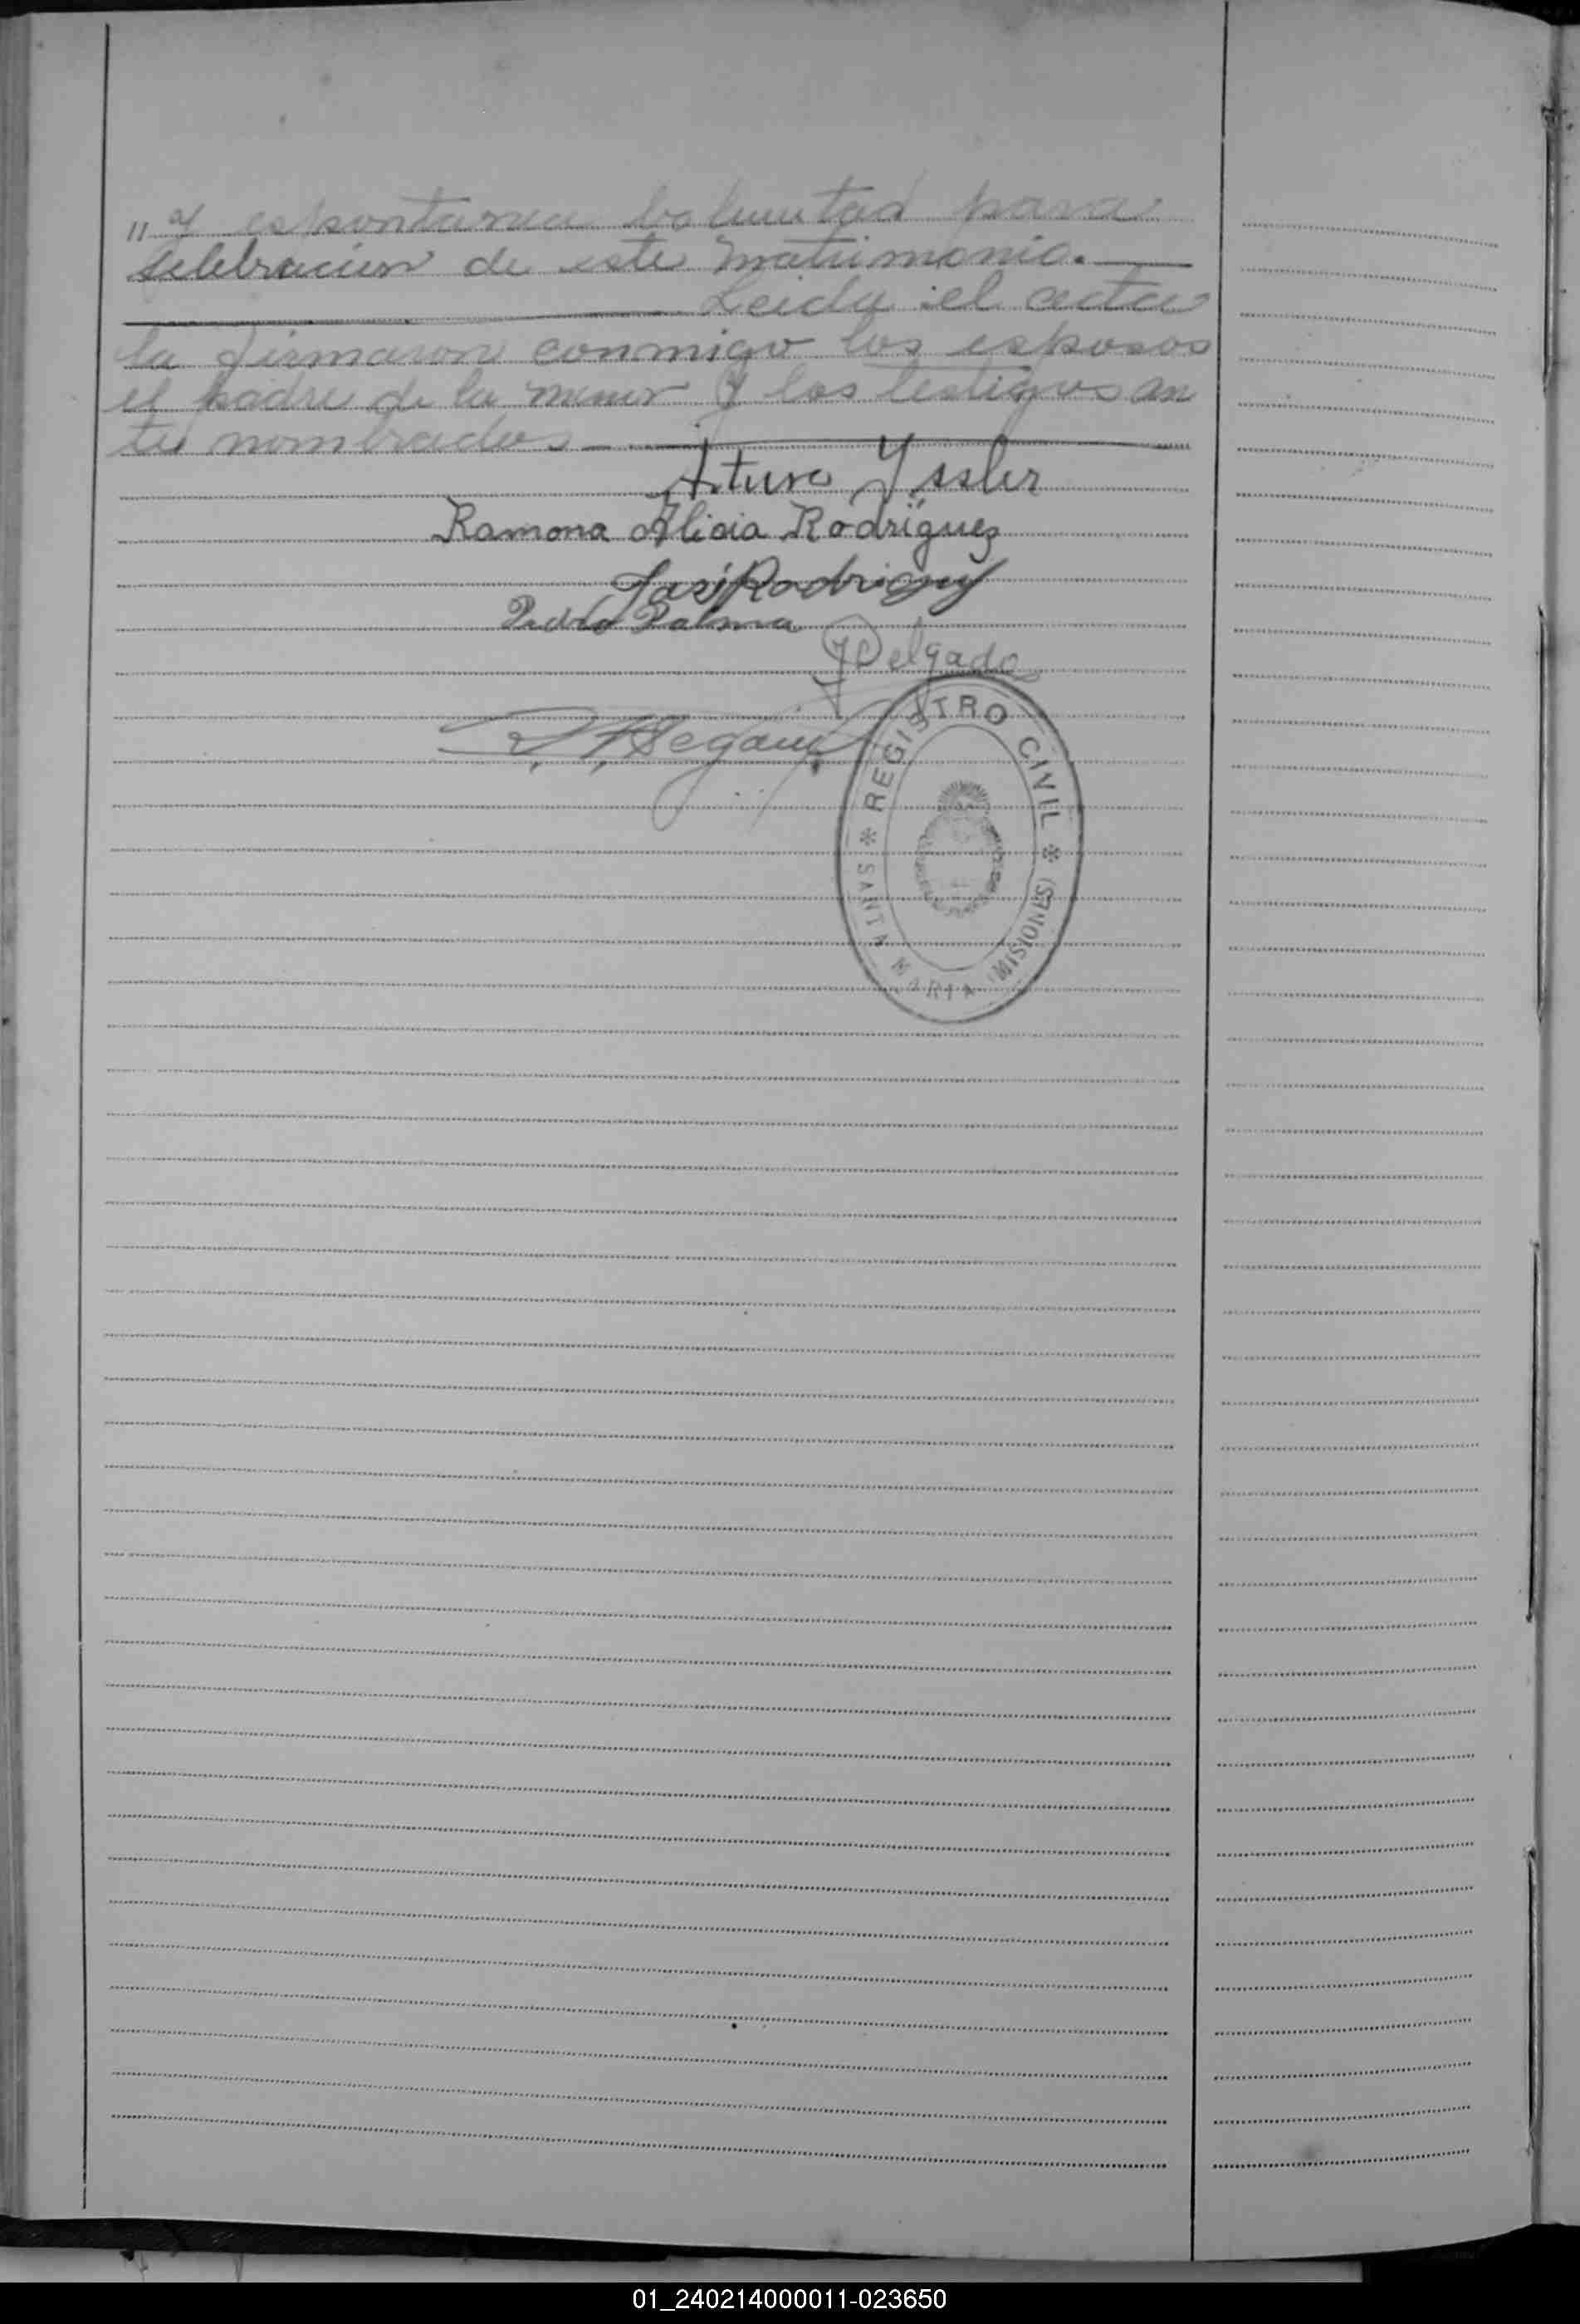 " y espontanea boluntad para
selebracion de este matrimonio.
Leida el acta
la firmaron conmigo los esposos
el padre de la menor y los testigos an
tes nombrados
Arturo Yssler
Ramona Alicia Rodríguez
José Rodriguez
Pedro Palma
J Delgado
REGISTRO CIVIL
* SANTA MARIA (MISIONES) *
01_240214000011-023650